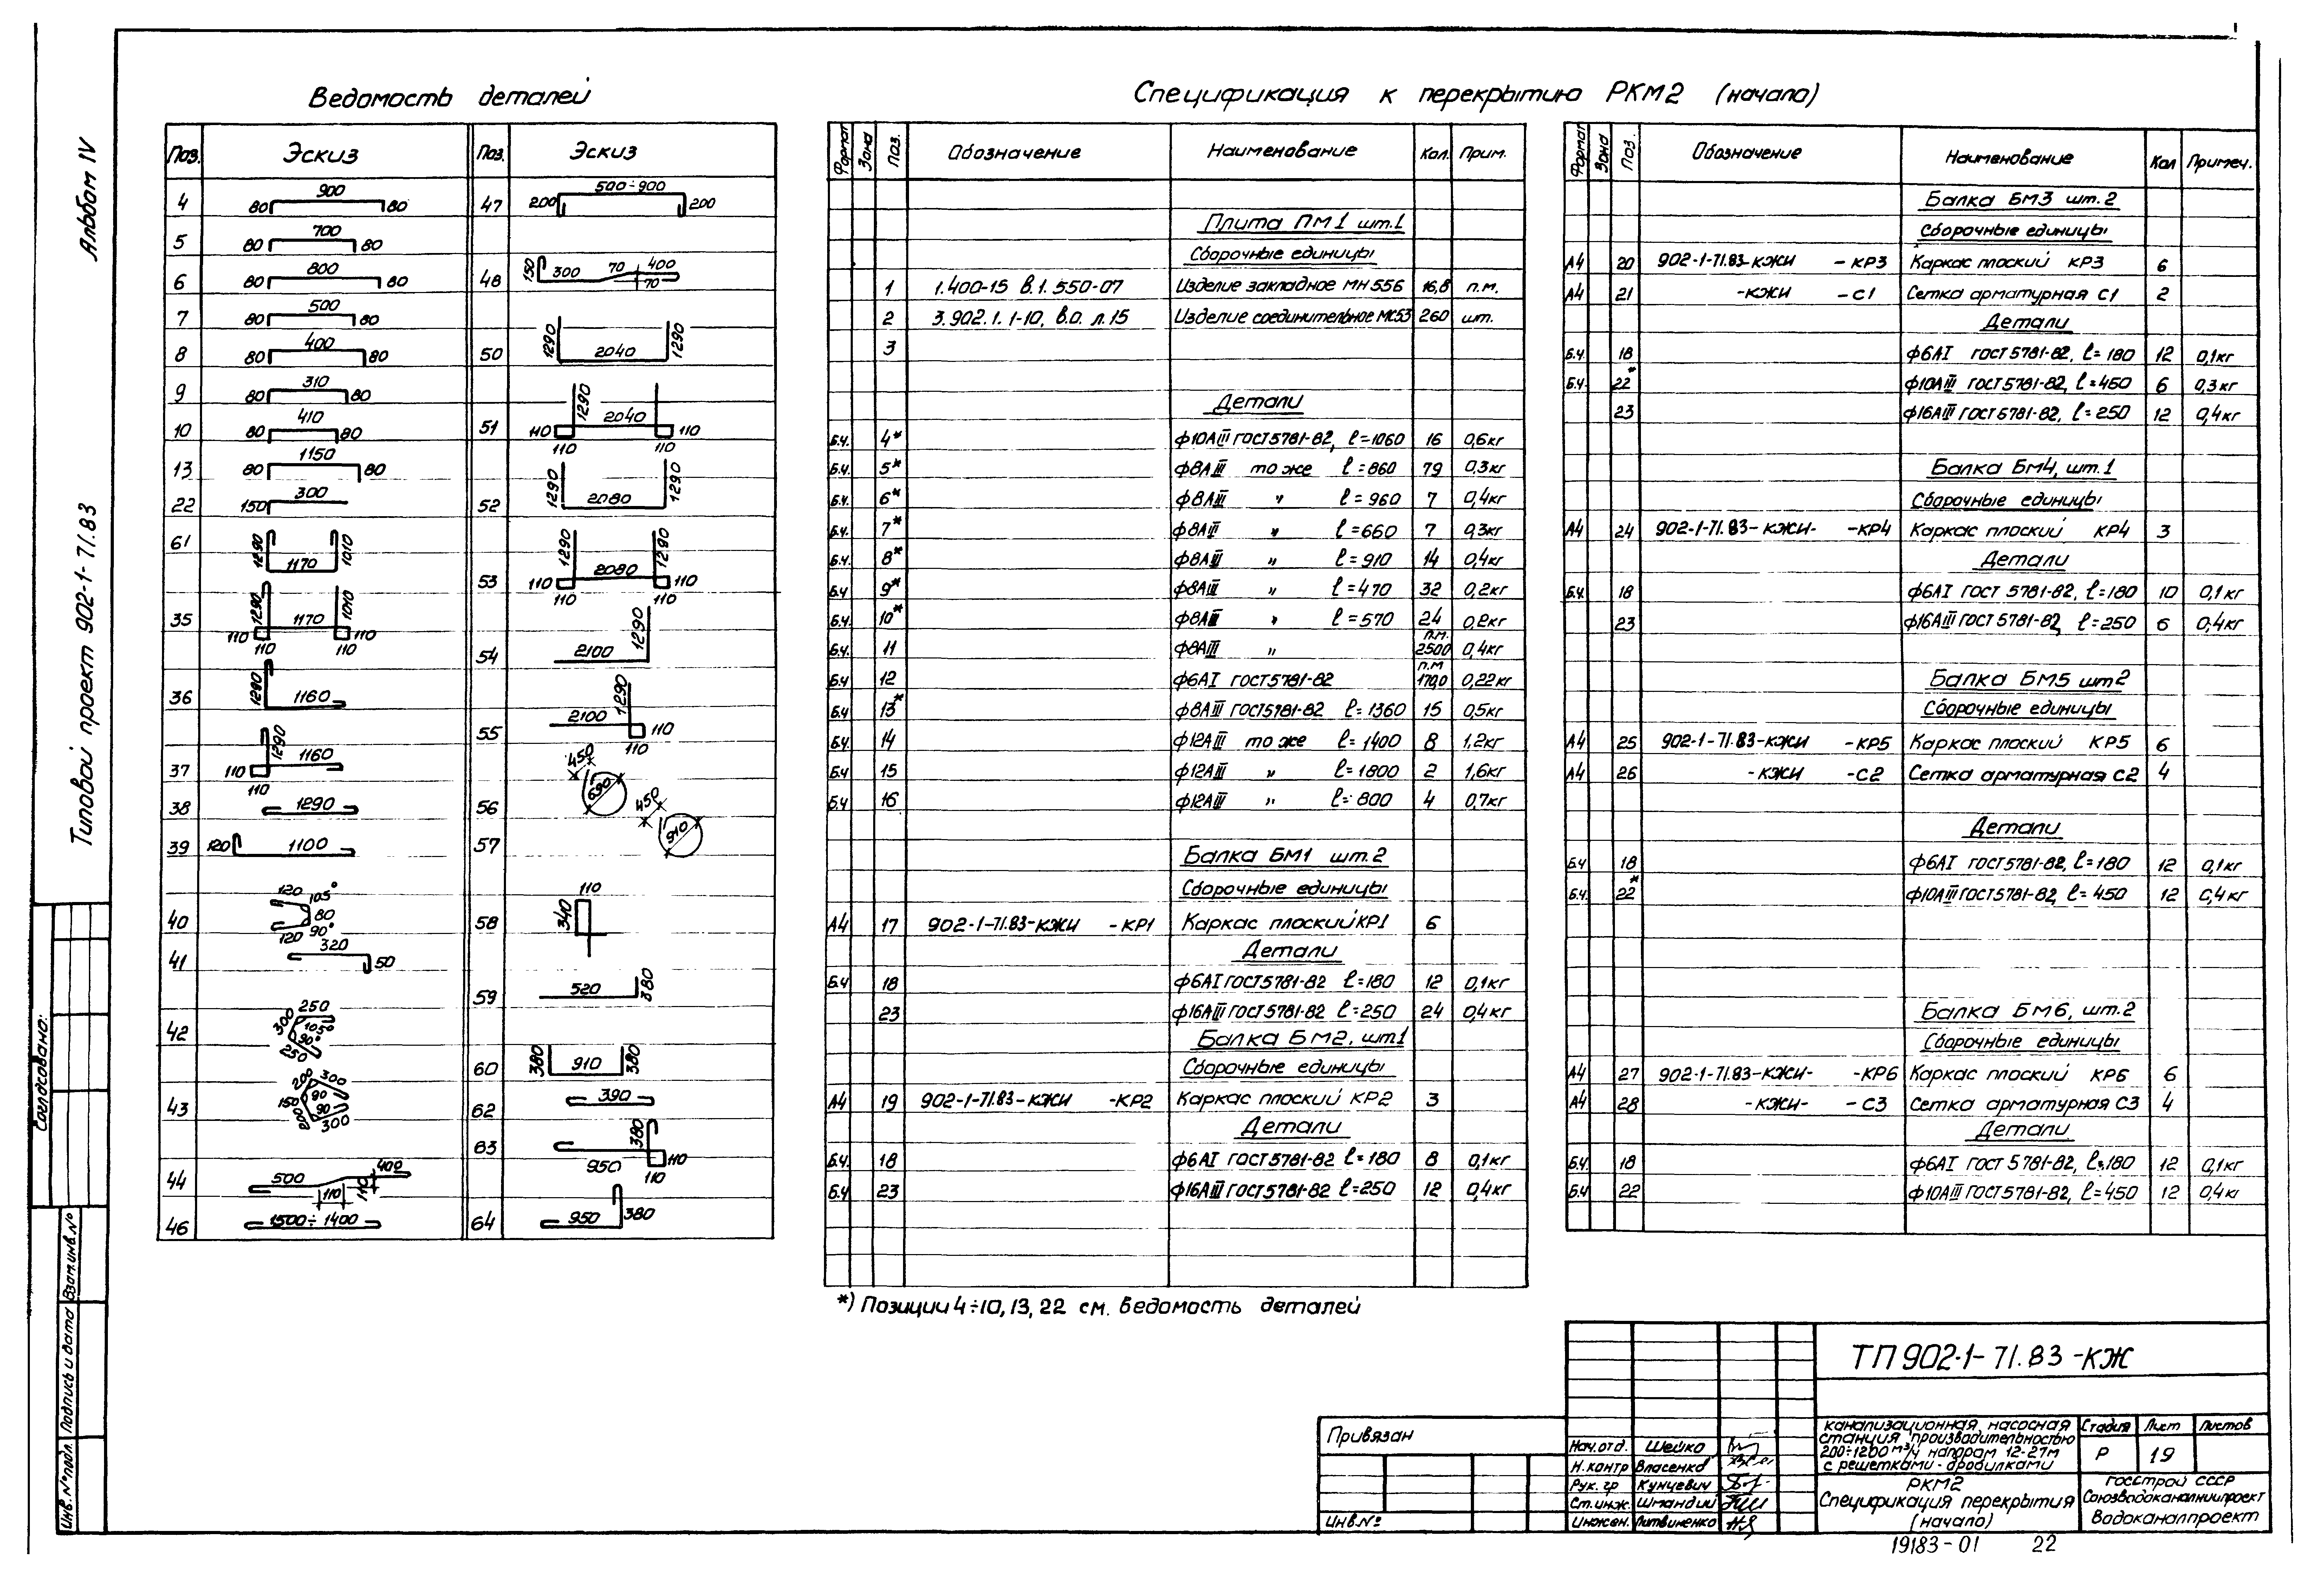 Альбом IV
Типовой проект 902-1-71.83
Согласовано:
Взам.инв.№
Подпись и дата
Инв.№подл.
Ведомость деталей
Поз. Эскиз Поз. Эскиз
4 80 900 80
5 80 700 80
6 80 800 80
7 80 500 80
8 80 400 80
9 80 310 80
10 80 410 80
13 80 1150 80
22 150 300
61 1290 1170 1010
35 1290 1170 1010 110 110 110 110
36 1290 1160
37 1290 1160 110 110
38 1290
39 120 1100
40 120 105° 80 90° 120
41 320 50
42 250 300 105° 90° 250
43 200 300 90 150 90 200 300
44 500 400 110 110
46 1500÷1400
47 200 500÷900 200
48 150 300 70 400 70
50 1290 2040 1290
51 1290 2040 110 110 110 110
52 1290 2080 1290
53 1290 2080 1290 110 110 110 110
54 2100 1290
55 2100 1290 110 110
56 450 690
57 450 910
58 110 340
59 520 380
60 380 910 380
62 390
63 380 950 110 110
64 950 380
Спецификация к перекрытию РКМ2 (начало)
Формат Зона Поз. Обозначение Наименование Кол. Прим.
Плита ПМ1 шт.1
Сборочные единицы
1 1.400-15 в.1. 550-07 Изделие закладное МН556 16,8 п.м.
2 3.902.1.1-10, в.о. л.15 Изделие соединительное МС53 260 шт.
3
Детали
Б.Ч. 4* ф10АIII ГОСТ5781-82, ℓ=1060 16 0,6кг
Б.Ч. 5* ф8АIII то же ℓ=860 79 0,3кг
Б.Ч. 6* ф8АIII " ℓ=960 7 0,4кг
Б.Ч. 7* ф8АIII " ℓ=660 7 0,3кг
Б.Ч. 8* ф8АIII " ℓ=910 14 0,4кг
Б.Ч 9* ф8АIII " ℓ=470 32 0,2кг
Б.Ч. 10* ф8АIII " ℓ=570 24 0,2кг
Б.Ч. 11 ф8АIII " п.м. 2500 0,4кг
Б.Ч 12 ф6АI ГОСТ5781-82 п.м 170,0 0,22кг
Б.Ч 13* ф8АIII ГОСТ5781-82 ℓ=1360 15 0,5кг
Б.Ч. 14 ф12АIII то же ℓ=1400 8 1,2кг
Б.Ч 15 ф12АIII " ℓ=1800 2 1,6кг
Б.Ч 16 ф12АIII " ℓ=800 4 0,7кг
Балка БМ1 шт.2
Сборочные единицы
А4 17 902-1-71.83-КЖИ -КР1 Каркас плоский КР1 6
Детали
Б.Ч 18 ф6АI ГОСТ5781-82 ℓ=180 12 0,1кг
23 ф16АIII ГОСТ5781-82 ℓ=250 24 0,4кг
Балка БМ2, шт1
Сборочные единицы
А4 19 902-1-71.83-КЖИ -КР2 Каркас плоский КР2 3
Детали
Б.Ч. 18 ф6АI ГОСТ5781-82 ℓ=180 8 0,1кг
Б.Ч 23 ф16АIII ГОСТ5781-82 ℓ=250 12 0,4кг
*) Позиции 4÷10, 13, 22 см. Ведомость деталей
Формат Зона Поз. Обозначение Наименование Кол Примеч.
Балка БМ3 шт.2
Сборочные единицы
А4 20 902-1-71.83-КЖИ -КР3 Каркас плоский КР3 6
А4 21 -КЖИ -С1 Сетка арматурная С1 2
Детали
Б.Ч. 18 ф6АI ГОСТ5781-82, ℓ=180 12 0,1кг
Б.Ч 22* ф10АIII ГОСТ5781-82, ℓ=450 6 0,3кг
23 ф16АIII ГОСТ5781-82, ℓ=250 12 0,4кг
Балка БМ4, шт.1
Сборочные единицы
А4 24 902-1-71.83-КЖИ- -КР4 Каркас плоский КР4 3
Детали
Б.Ч. 18 ф6АI ГОСТ 5781-82, ℓ=180 10 0,1кг
23 ф16АIII ГОСТ5781-82, ℓ=250 6 0,4кг
Балка БМ5 шт2
Сборочные единицы
А4 25 902-1-71.83-КЖИ -КР5 Каркас плоский КР5 6
А4 26 -КЖИ -С2 Сетка арматурная С2 4
Детали
Б.Ч 18 ф6АI ГОСТ5781-82, ℓ=180 12 0,1кг
Б.Ч. 22* ф10АIII ГОСТ5781-82, ℓ=450 12 0,4кг
Балка БМ6, шт.2
Сборочные единицы
А4 27 902-1-71.83-КЖИ- -КР6 Каркас плоский КР6 6
А4 28 -КЖИ- -С3 Сетка арматурная С3 4
Детали
Б.Ч. 18 ф6АI ГОСТ 5781-82, ℓ=180 12 0,1кг
Б.Ч 22 ф10АIII ГОСТ5781-82, ℓ=450 12 0,4кг
Привязан
Инв.№
Нач.отд. Шейко
Н.контр Власенко
Рук. гр Кунцевич
Ст.инж. Штандий
Инжен. Литвиненко
ТП 902-1-71.83-КЖ
канализационная насосная
станция производительностью
200÷1200 м³/ч напором 12-27м
с решетками-дробилками
Стадия Лист Листов
Р 19
РКМ2
Спецификация перекрытия
(начало)
Госстрой СССР
Союзводоканалниипроект
Водоканалпроект
19183-01 22